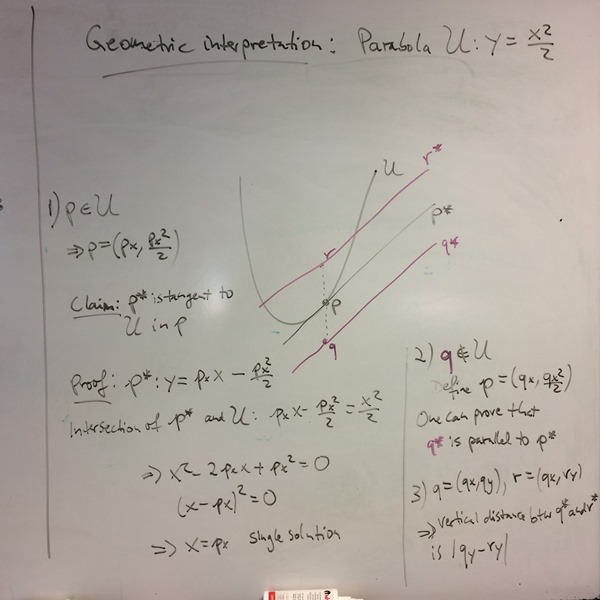 Geometric interpretation: Parabola U: y = x²/2
U
r*
p*
q*
r
p
q
1) p ∈ U
⇒ p = (px, px²/2)
Claim: p* is tangent to
U in p
Proof: p*: y = px x - px²/2
Intersection of p* and U: px x - px²/2 = x²/2
⇒ x² - 2px x + px² = 0
(x - px)² = 0
⇒ x = px single solution
2) q ∉ U
Define p = (qx, qx²/2)
One can prove that
q* is parallel to p*
3) q = (qx, qy), r = (qx, ry)
⇒ vertical distance btw q* and r*
is |qy - ry|